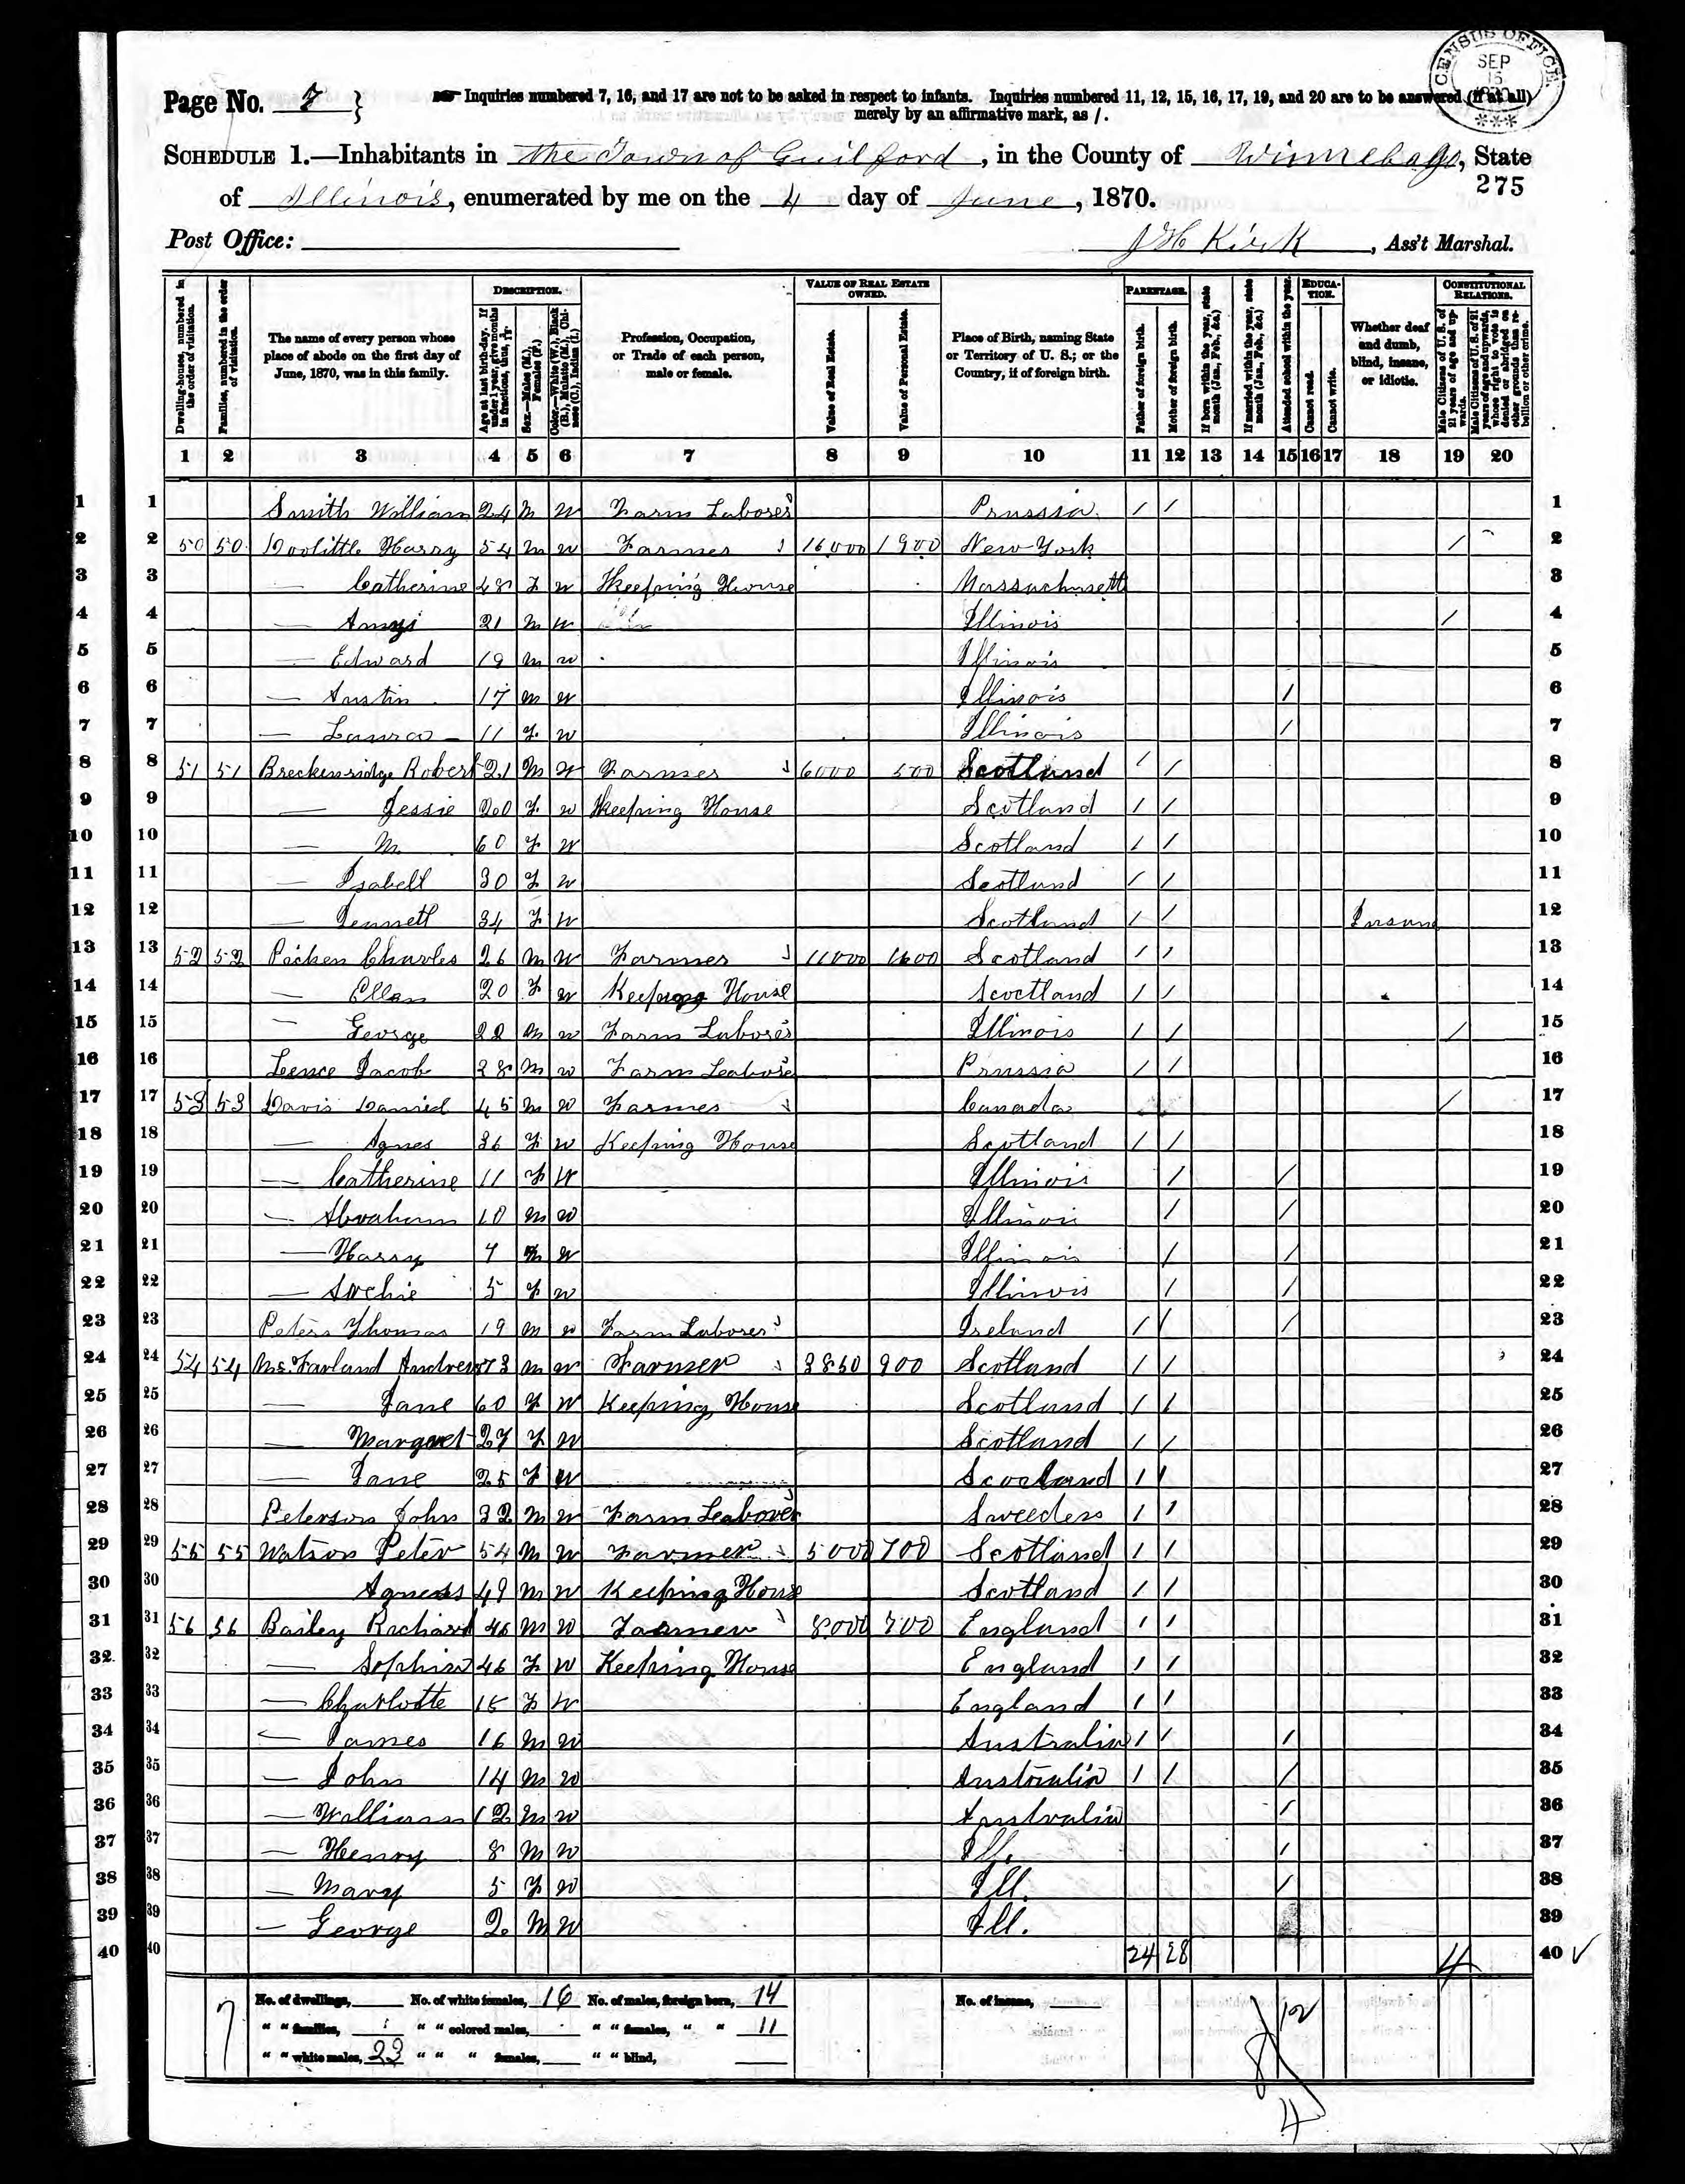 CENSUS OFFICE SEP 15 1870 ***
Page No. 7 } Inquiries numbered 7, 16, and 17 are not to be asked in respect to infants. Inquiries numbered 11, 12, 15, 16, 17, 19, and 20 are to be answered (if at all)
merely by an affirmative mark, as /.
SCHEDULE 1.—Inhabitants in the Town of Guilford, in the County of Winnebago, State
275
of Illinois, enumerated by me on the 4 day of June, 1870.
Post Office: J H Kirk, Ass't Marshal.
Dwelling-houses, numbered in the order of visitation.
Families, numbered in the order of visitation.
The name of every person whose place of abode on the first day of June, 1870, was in this family.
DESCRIPTION.
Age at last birth-day. If under 1 year, give months in fractions, thus, 3/12
Sex.—Males (M.), Females (F.)
Color.—White (W.), Black (B.), Mulatto (M.), Chinese (C.), Indian (I.)
Profession, Occupation, or Trade of each person, male or female.
VALUE OF REAL ESTATE OWNED.
Value of Real Estate.
Value of Personal Estate.
Place of Birth, naming State or Territory of U. S.; or the Country, if of foreign birth.
PARENTAGE.
Father of foreign birth.
Mother of foreign birth.
If born within the year, state month (Jan., Feb., &c.)
If married within the year, state month (Jan., Feb., &c.)
Attended school within the year.
EDUCATION.
Cannot read.
Cannot write.
Whether deaf and dumb, blind, insane, or idiotic.
CONSTITUTIONAL RELATIONS.
Male Citizens of U. S. of 21 years of age and upwards.
Male Citizens of U. S. of 21 years of age and upwards, whose right to vote is denied or abridged on other grounds than rebellion or other crime.
1 2 3 4 5 6 7 8 9 10 11 12 13 14 15 16 17 18 19 20
1 1 Smith William 24 M W Farm Laborer Prussia / / 1
2 2 50 50 Doolittle Harry 54 M W Farmer 16000 1900 New York / 2
3 3 — Catherine 48 F W Keeping House Massachusetts 3
4 4 — 21 M W Illinois / 4
5 5 — Edward 19 M W Illinois 5
6 6 — Austin 17 M W Illinois / 6
7 7 — Laura 11 F W Illinois / 7
8 8 51 51 Breckenridge Robert 21 M W Farmer 6000 500 Scotland / / 8
9 9 — Jessie 20 F W Keeping House Scotland / / 9
10 10 — M. 60 F W Scotland / / 10
11 11 — Isabell 30 F W Scotland / / 11
12 12 — Jennett 34 F W Scotland / / Insane 12
13 13 52 52 Picken Charles 26 M W Farmer 11000 1600 Scotland / / 13
14 14 — Ellen 20 F W Keeping House Scoctland / / 14
15 15 — George 22 M W Farm Laborer Illinois / / / 15
16 16 Lence Jacob 38 M W Farm Leaborer Prussia / / 16
17 17 53 53 Davis Daniel 45 M W Farmer Canada / 17
18 18 — Agnes 36 F W Keeping House Scotland / / 18
19 19 — Catherine 11 F W Illinois / / 19
20 20 — Abraham 10 M W Illinois / / 20
21 21 — Harry 7 M W Illinois / / 21
22 22 — Archie 5 F W Illinois / / 22
23 23 Peters Thomas 19 M W Farm Laborer Ireland / / / 23
24 24 54 54 Mc.Farland Andrew 73 M W Farmer 3850 900 Scotland / / 24
25 25 — Jane 60 F W Keeping House Scotland / / 25
26 26 — Margaret 27 F W Scotland / / 26
27 27 — Jane 25 F W Scotland / / 27
28 28 Peterson John 32 M W Farm Leaborer Sweeden / / 28
29 29 55 55 Watson Peter 54 M W Farmer 5000 700 Scotland / / 29
30 30 Agness 49 M W Keeping House Scotland / / 30
31 31 56 56 Bailey Richard 46 M W Farmer 8000 700 England / / 31
32 32 — Sophia 46 F W Keeping House England / / 32
33 33 — Charlotte 18 F W England / / 33
34 34 — James 16 M W Australia / / / 34
35 35 — John 14 M W Australia / / / 35
36 36 — William 12 M W Australia / 36
37 37 — Henry 8 M W Ill. / 37
38 38 — Mary 5 F W Ill. / 38
39 39 — George 2 M W Ill. 39
40 40 24 28 4 40 √
7 No. of dwellings, No. of white females, 16 No. of males, foreign born, 14 No. of insane,
" " families, " " colored males, " " females, " " 11 12
" " white males, 23 " " " females, " " blind,
8
4